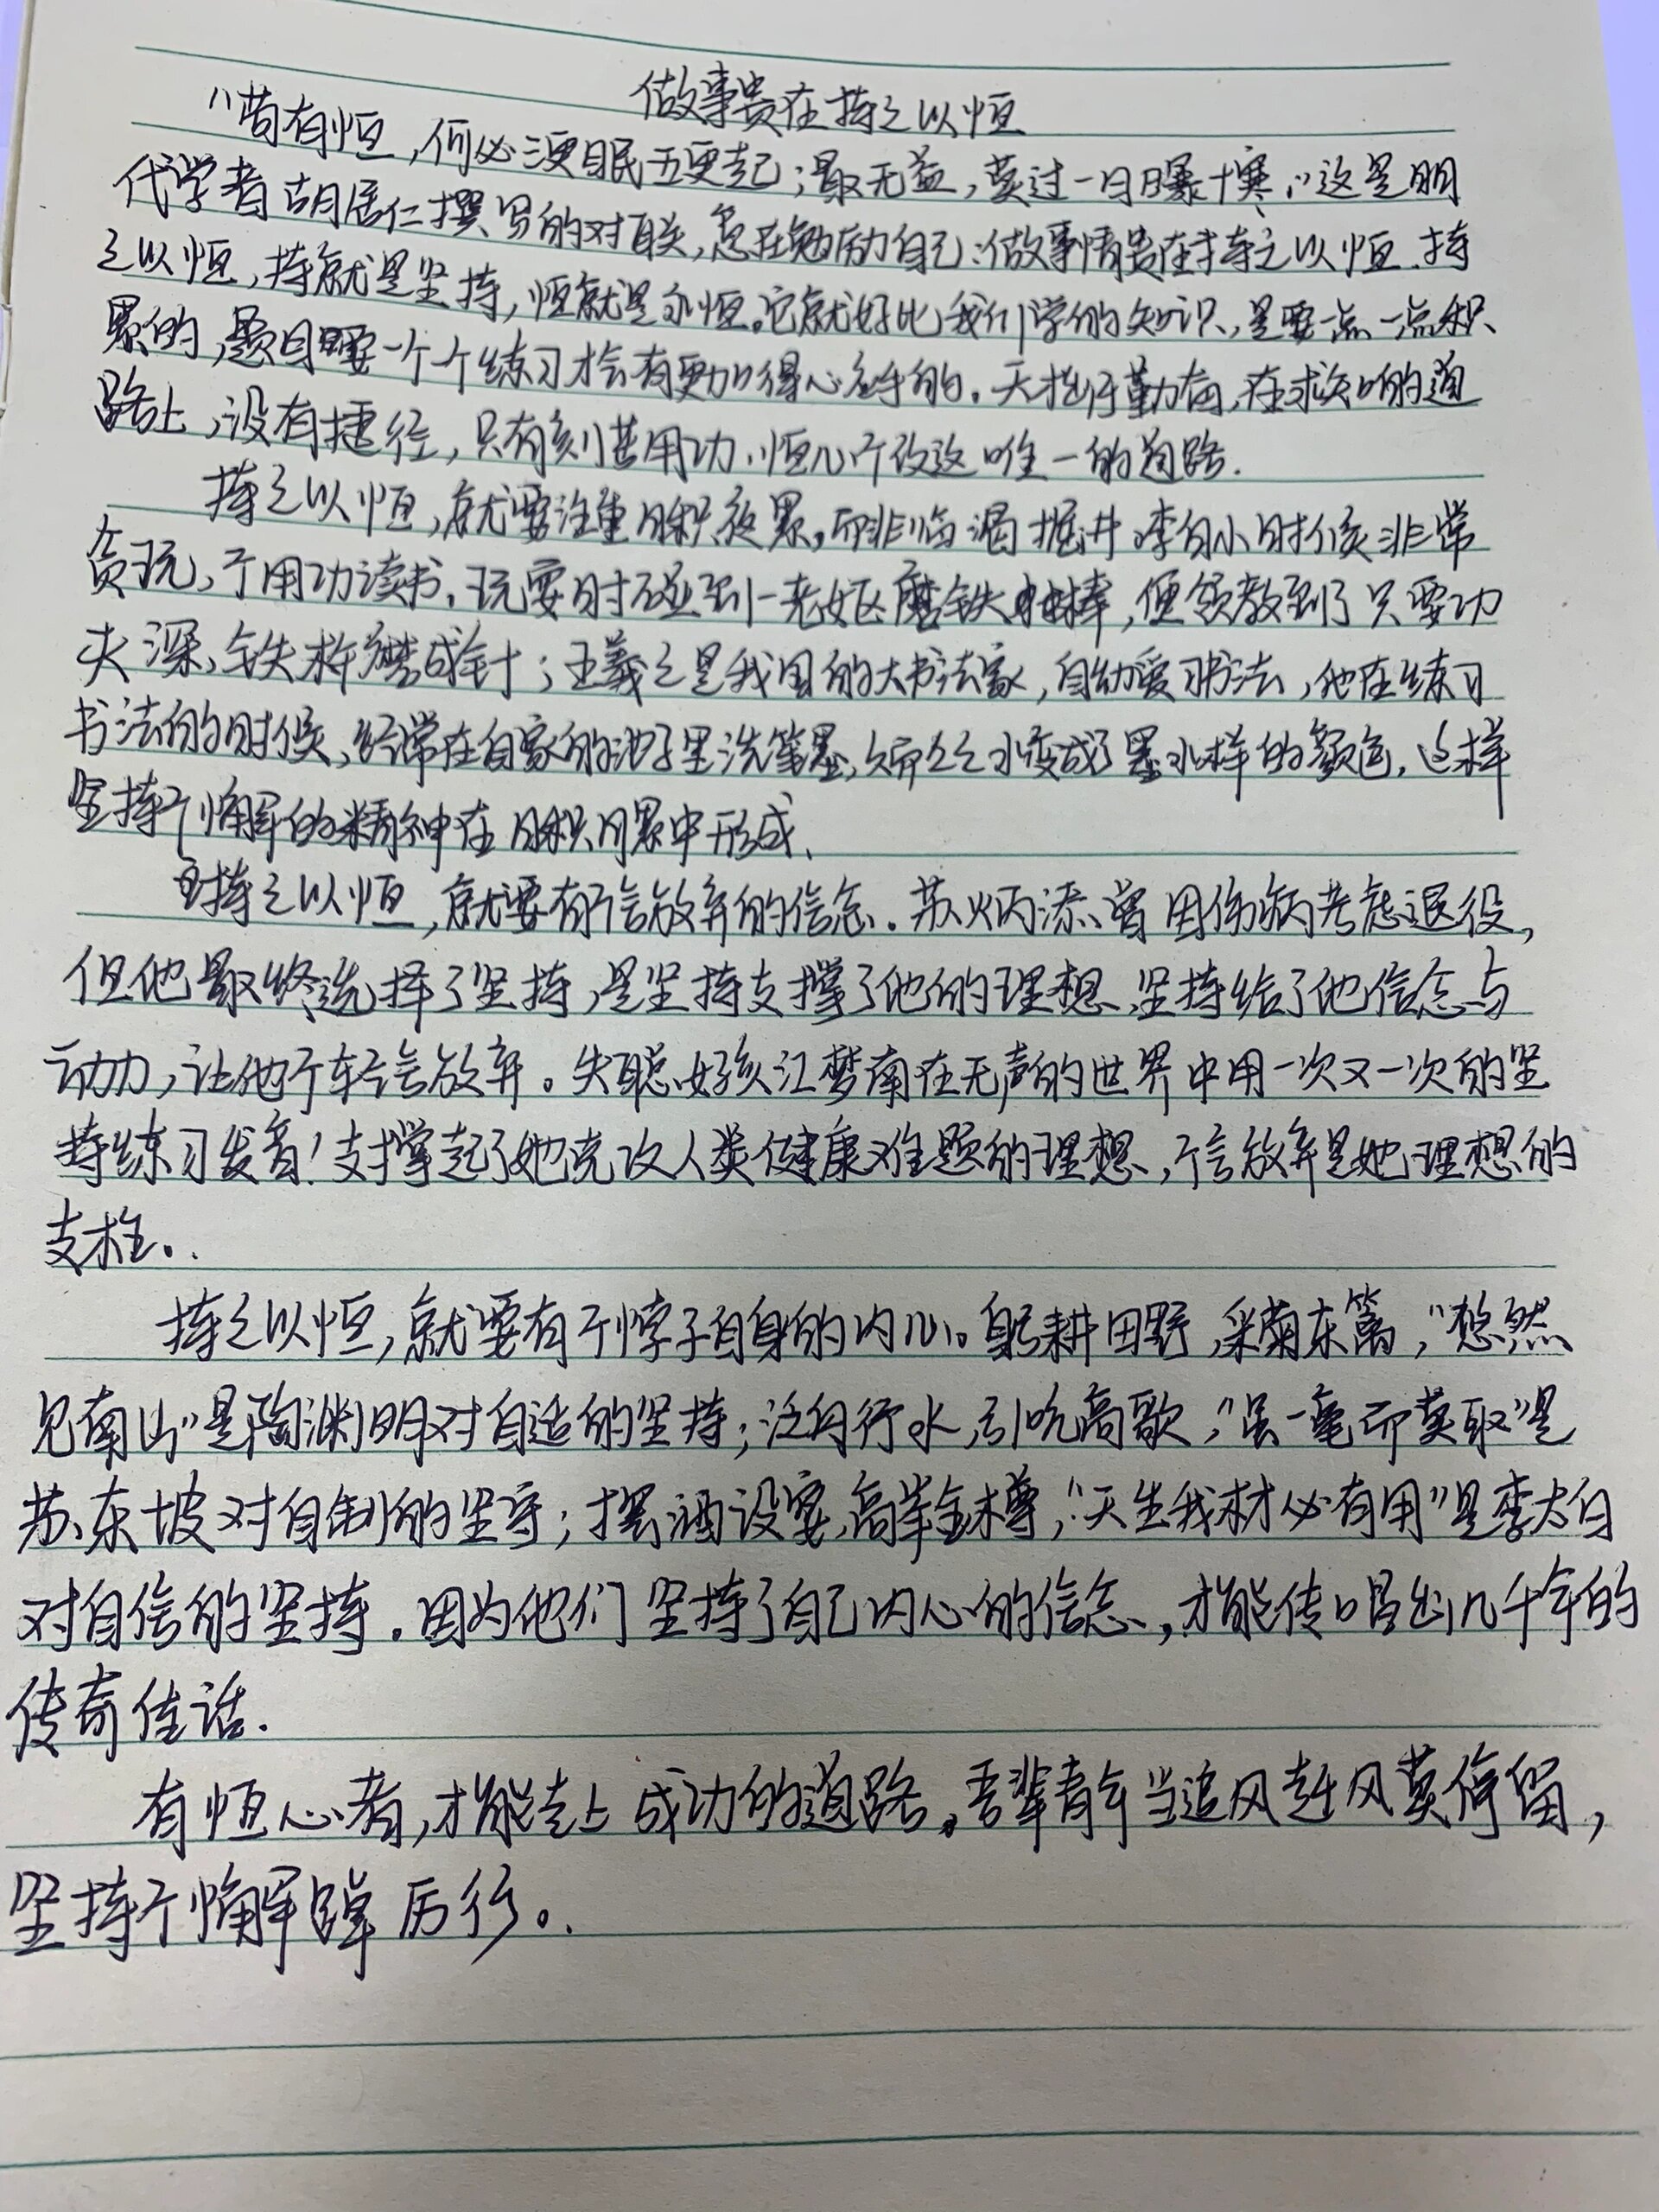 做事贵在持之以恒
"苟有恒,何必三更眠五更起;最无益,莫过一日曝十寒。"这是明
代学者胡居仁撰写的对联,意在勉励自己:做事情贵在持之以恒.持
之以恒,持就是坚持,恒就是永恒。它就好比我们学的知识,是要一点一点积
累的,题目要一个个练习才会有更加得心应手的。天才出于勤奋,在求知的道
路上,没有捷径,只有刻苦用功、恒心不改这唯一的道路.
持之以恒,就要注重日积夜累,而非临渴掘井.李白小时候非常
贪玩,不用功读书.玩耍时碰到一老妪磨铁棒,便领教到了只要功
夫深,铁杵磨成针;王羲之是我国的大书法家,自幼爱习书法,他在练习
书法的时候,经常在自家的池子里洗笔墨,池水变成了墨水样的颜色,这样
坚持不懈的精神在日积月累中形成.
持之以恒,就要有不言放弃的信念.苏炳添曾因伤病考虑退役,
但他最终选择了坚持,是坚持支撑了他的理想,坚持给了他信念与
动力,让他不轻言放弃。失聪女孩江梦南在无声的世界中用一次又一次的坚
持练习发音!支撑起了她克攻人类健康难题的理想,不言放弃是她理想的
支柱。
持之以恒,就要有不悖于自身的内心。躬耕田野,采菊东篱,"悠然
见南山"是陶渊明对自适的坚持;泛舟行水,引吭高歌,"虽一毫而莫取"是
苏东坡对自制的坚守;摆酒设宴,高举金樽,"天生我材必有用"是李太白
对自信的坚持.因为他们坚持了自己内心的信念,才能传唱出几千年的
传奇佳话.
有恒心者,才能走上成功的道路。吾辈青年当追风赶风莫停留,
坚持不懈踔厉行。